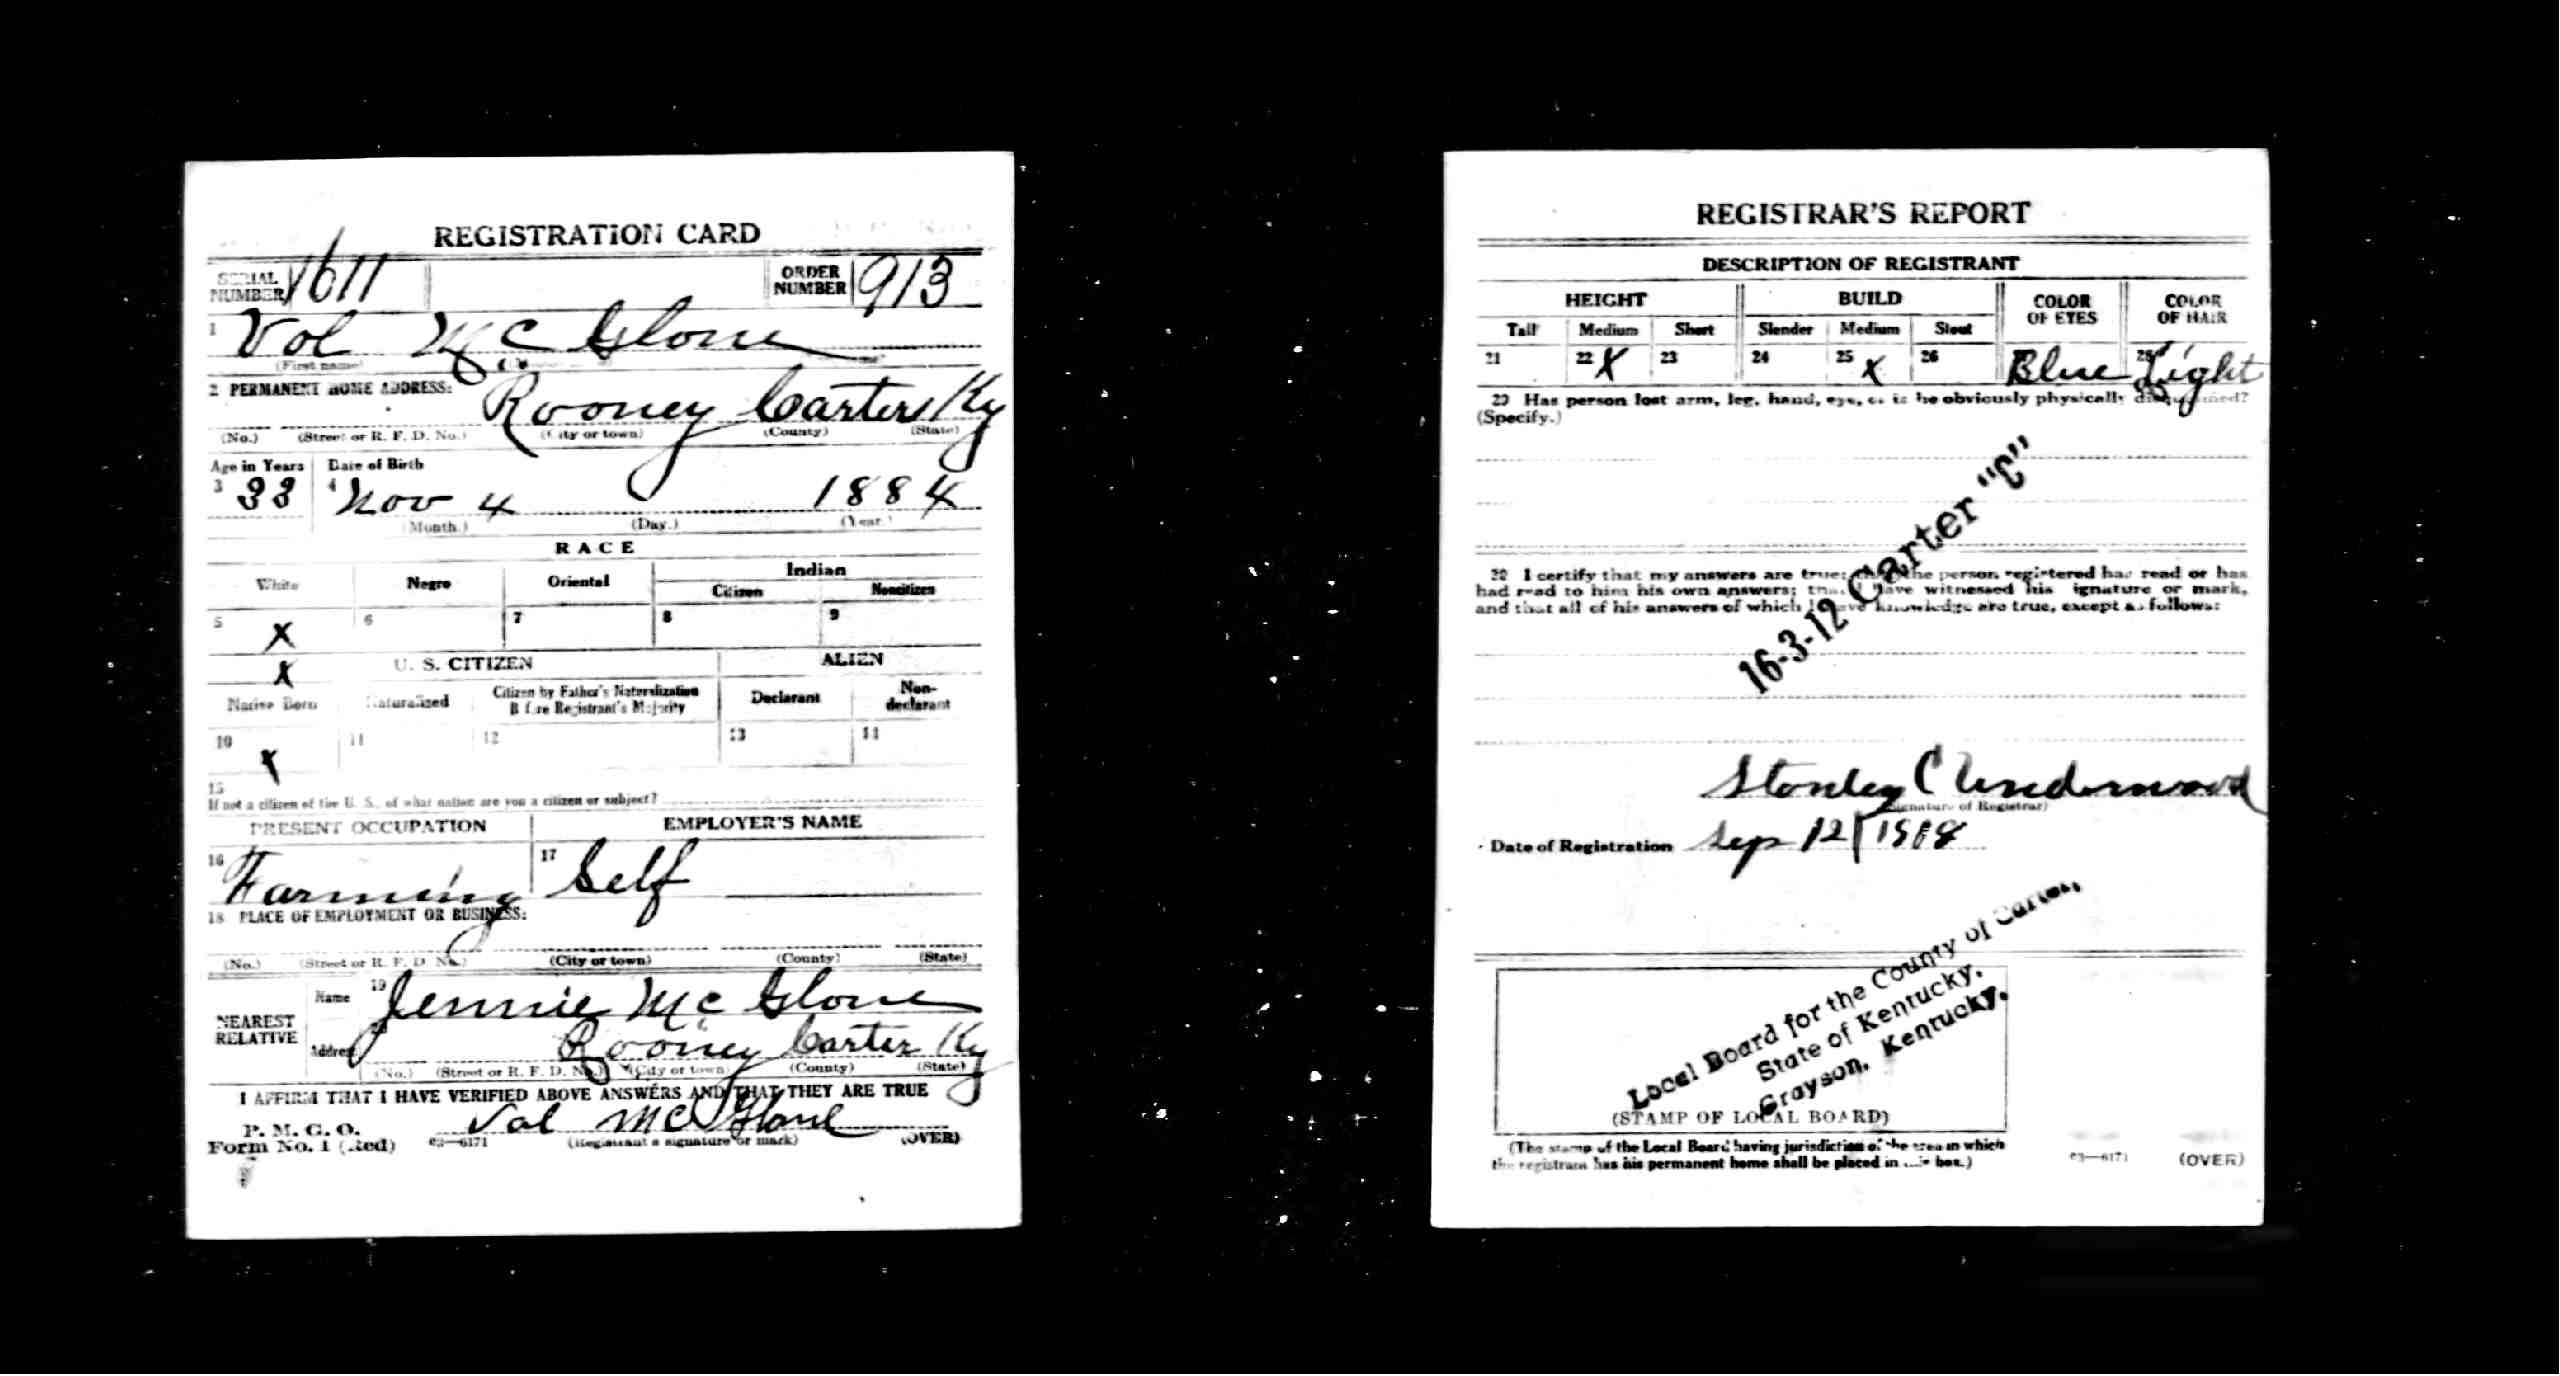 REGISTRATION CARD
SERIAL NUMBER 1611 ORDER NUMBER 913
1 Vol McGlone
(First name)
2 PERMANENT HOME ADDRESS:
Rooney Carter Ky
(No.) (Street or R. F. D. No.) (City or town) (County) (State)
Age in Years Date of Birth
3 33 4 Nov 4 1884
(Month.) (Day.) (Year.)
RACE
White Negro Oriental Indian
Citizen Noncitizen
5 X 6 7 8 9
X U. S. CITIZEN ALIEN
Native Born Naturalized Citizen by Father's Naturalization Before Registrant's Majority Declarant Non-declarant
10 X 11 12 13 14
15
If not a citizen of the U. S., of what nation are you a citizen or subject?
PRESENT OCCUPATION EMPLOYER'S NAME
16 Farming 17 Self
18 PLACE OF EMPLOYMENT OR BUSINESS:
(No.) (Street or R. F. D. No.) (City or town) (County) (State)
NEAREST RELATIVE
Name 19 Jennie McGlone
Address Rooney Carter Ky
(No.) (Street or R. F. D. No.) (City or town) (County) (State)
I AFFIRM THAT I HAVE VERIFIED ABOVE ANSWERS AND THAT THEY ARE TRUE
P. M. G. O.
Form No. 1 (Red) 03—6171 Val McGlone (OVER)
(Registrant's signature or mark)
REGISTRAR'S REPORT
DESCRIPTION OF REGISTRANT
HEIGHT BUILD COLOR OF EYES COLOR OF HAIR
Tall Medium Short Slender Medium Stout
21 22 X 23 24 25 X 26 Blue 28 Light
29 Has person lost arm, leg, hand, eye, or is he obviously physically disqualified?
(Specify.)
16-3-12 Carter "C"
30 I certify that my answers are true; that the person registered has read or has
had read to him his own answers; that I have witnessed his signature or mark,
and that all of his answers of which I have knowledge are true, except as follows:
Stanley C Underwood
(Signature of Registrar)
Date of Registration Sep 12 / 1918
Local Board for the County of Carter,
State of Kentucky.
Grayson, Kentucky.
(STAMP OF LOCAL BOARD)
(The stamp of the Local Board having jurisdiction of the area in which
the registrant has his permanent home shall be placed in this box.)
03—6171 (OVER)